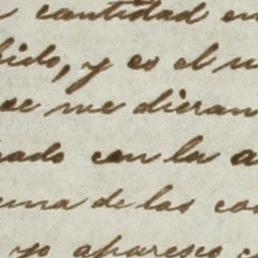 cantidad en
bido, y es el u
se me dieran
ado con la a
una de las co
yo aparesco